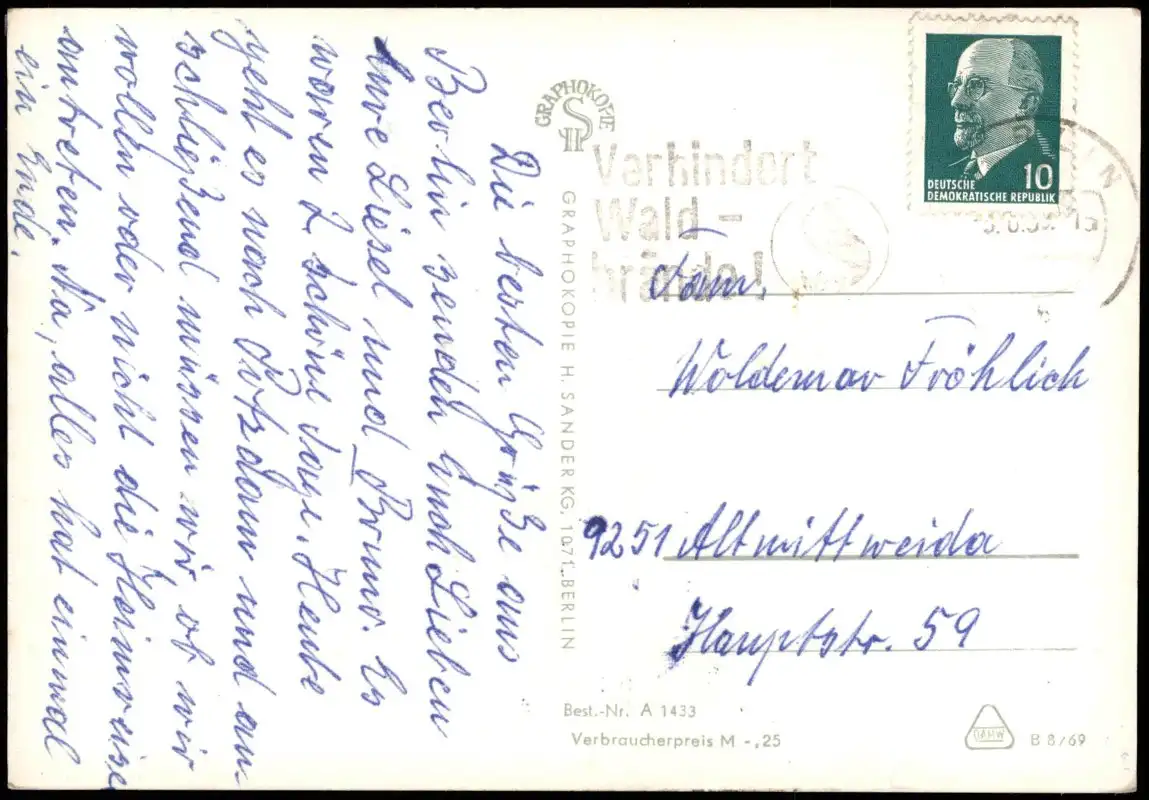 Die besten Grüße aus
Berlin senden Euch Lieben
Eure Liesel und Bruno. Es
waren 2 schöne Tage. Heute
geht es nach Potzdam und an-
schließend müssen wir, ob wir
wollen oder nicht die Heimreise
antreten. Na, alles hat einmal
ein Ende.
GRAPHOKOPIE
GRAPHOKOPIE H. SANDER KG, 1071 BERLIN
Verhindert
Wald-
brände!
DEUTSCHE
DEMOKRATISCHE REPUBLIK
10
Fam.
Woldemar Fröhlich
9251 Altmittweida
Hauptstr. 59
Best.-Nr. A 1433
Verbraucherpreis M -,25
B 8/69